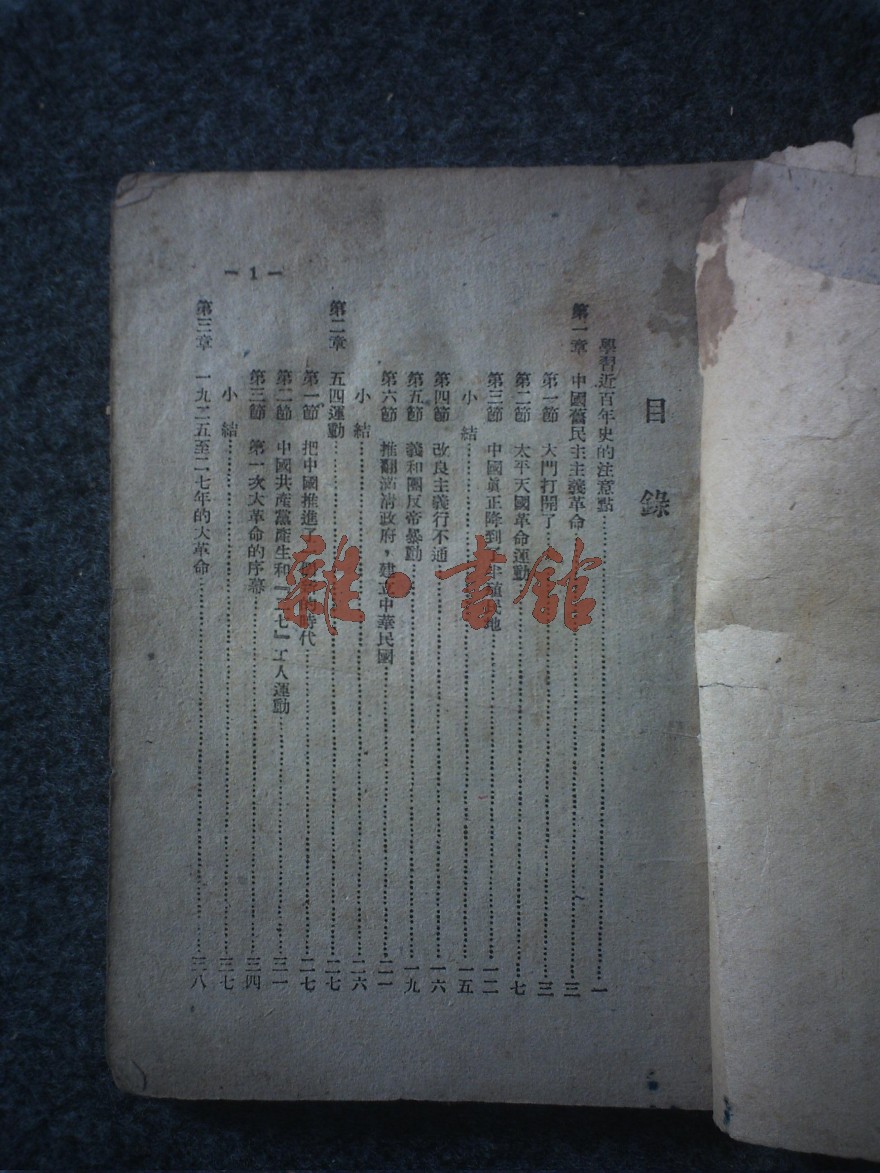 目錄
學習近百年史的注意點……一
第一章 中國舊民主主義革命……三
第一節 大門打開了……三
第二節 太平天國革命運動……七
第三節 中國眞正降到了半殖民地……一二
小結……一五
第四節 改良主義行不通……一六
第五節 義和團反帝暴動……一九
第六節 推翻滿清政府，建立中華民國……二一
小結……二六
第二章 五四運動……二七
第一節 把中國推進了的時代……二七
第二節 中國共產黨產生和「二七」工人運動……三一
第三節 第一次大革命的序幕……三四
小結……三七
第三章 一九二五至二七年的大革命……三八
— 1 —
雜·書館